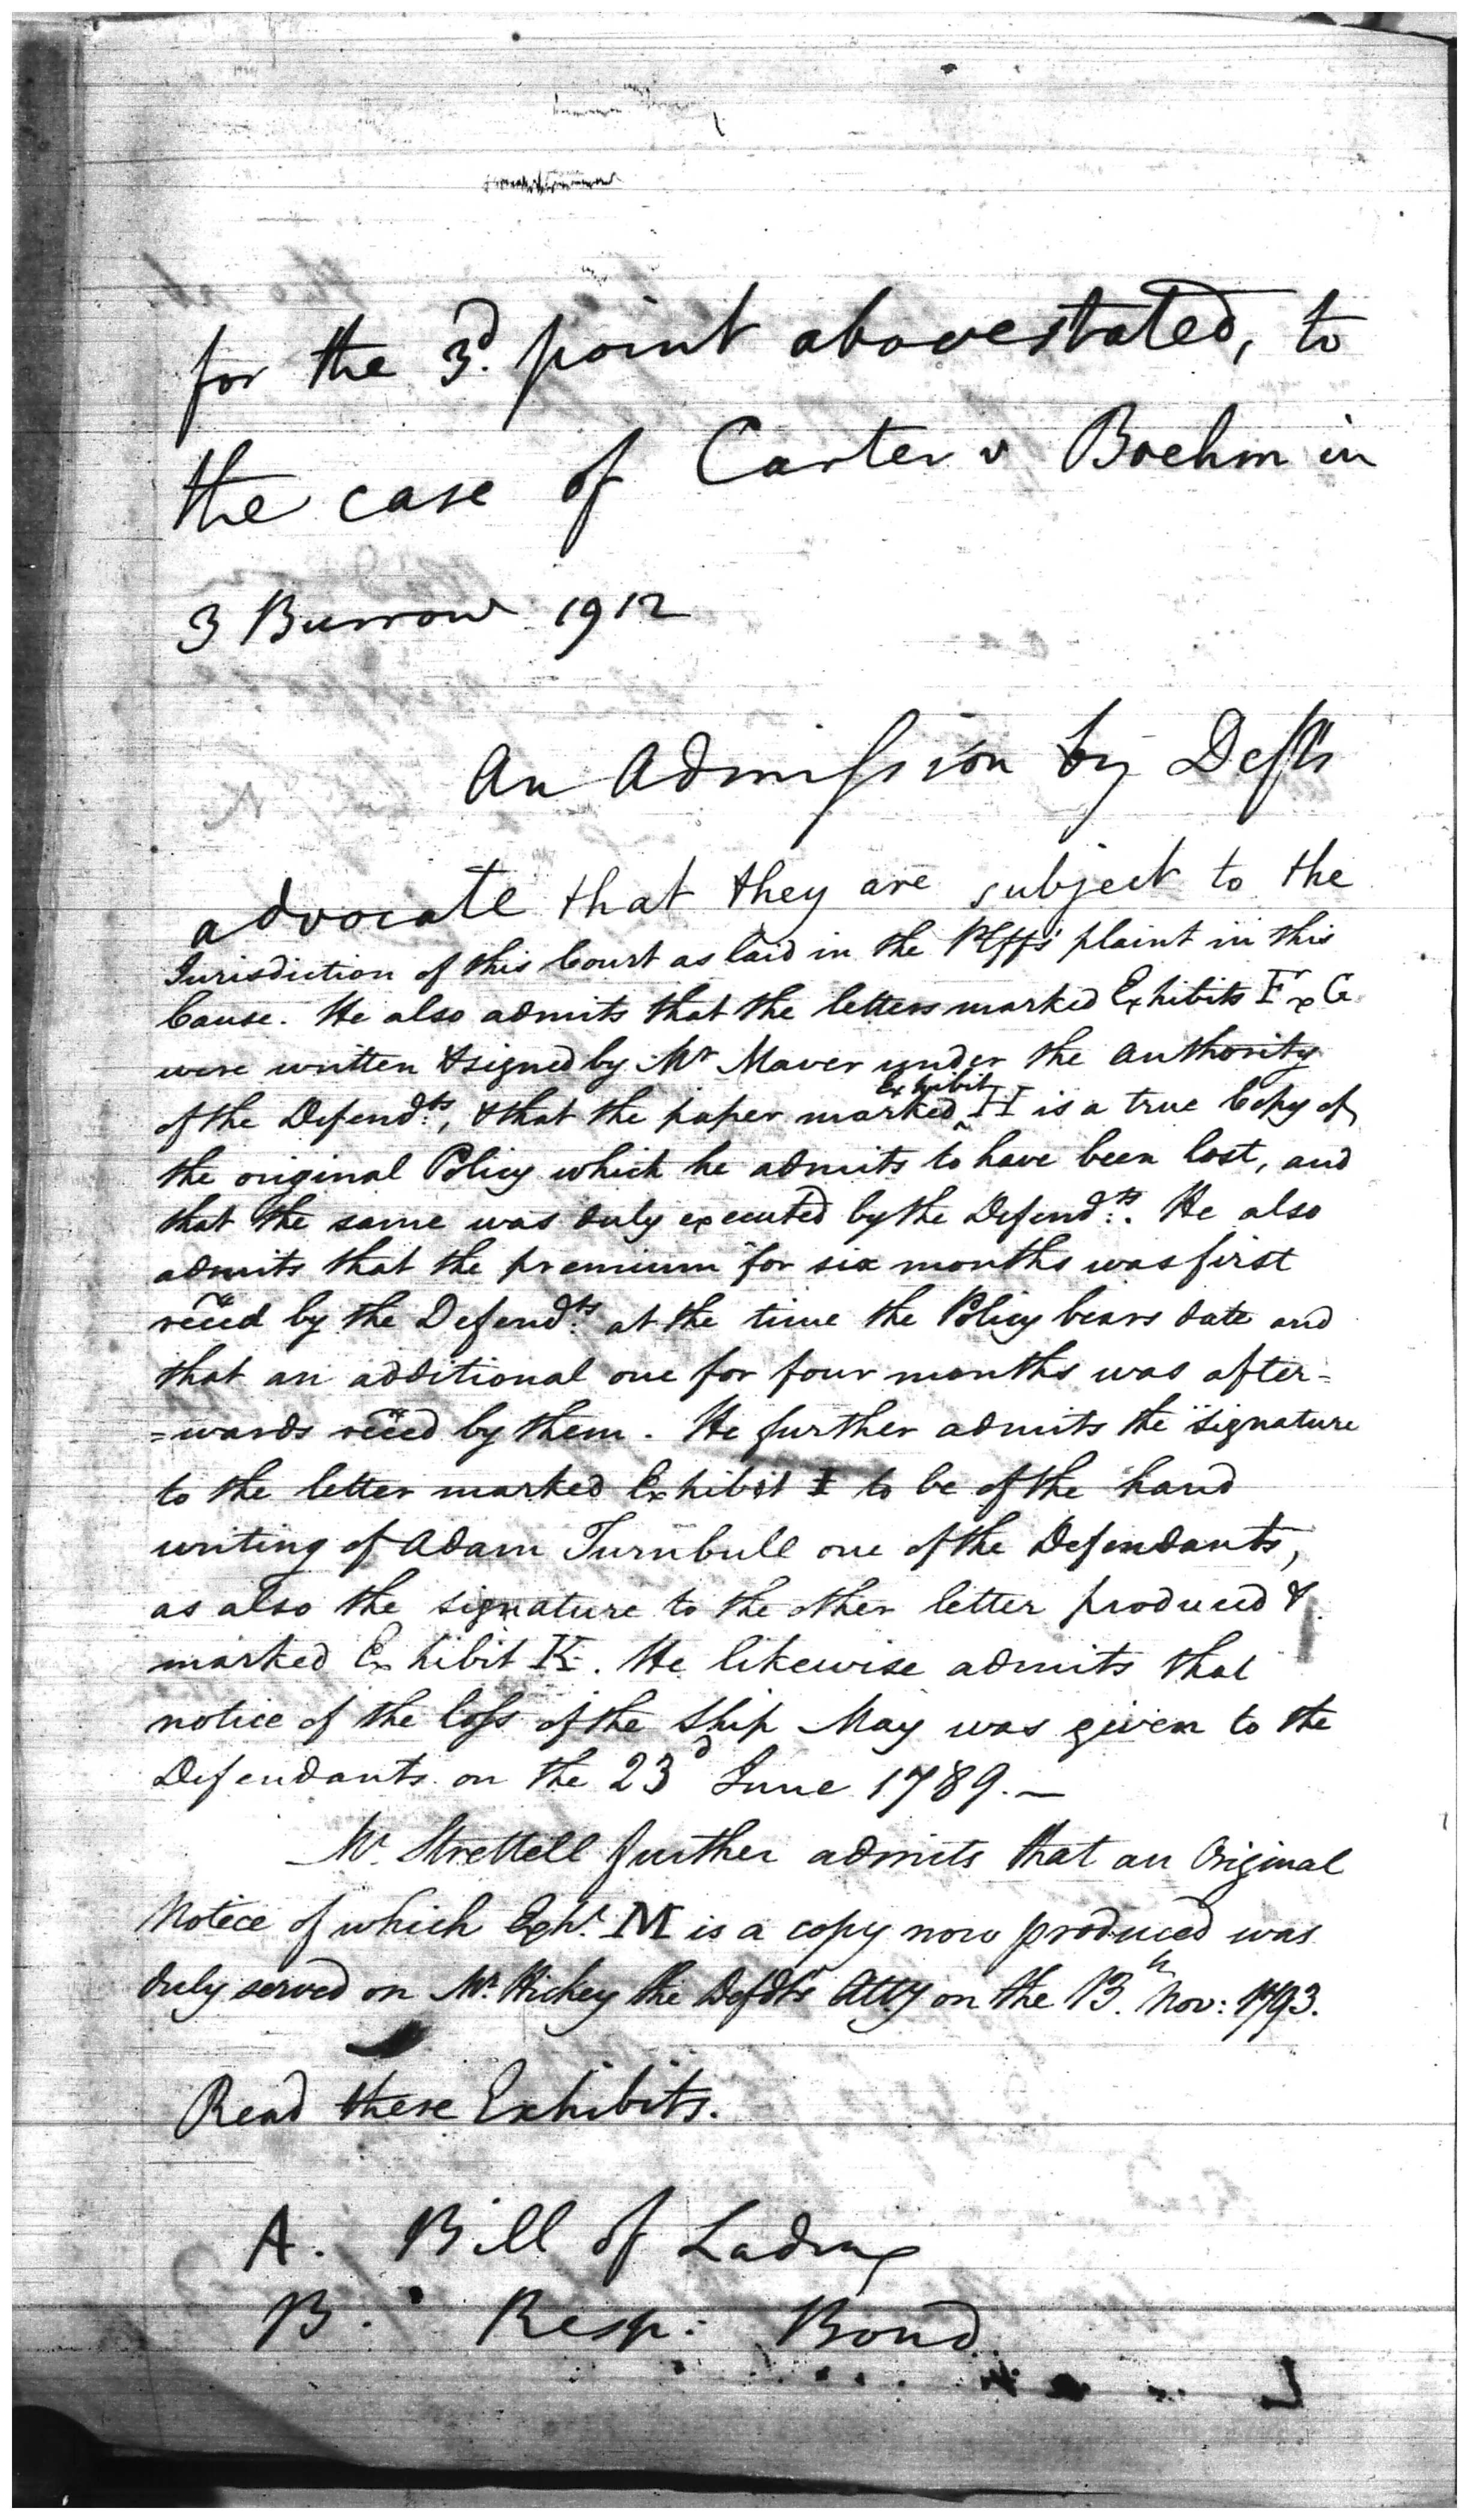 for the 3.d point abovestated, to
the case of Carter v Boehm in
3 Burrow 1912
An Admission by Defts
advocate that they are subject to the
Jurisdiction of this Court as laid in the Pltffs' plaint in this
Cause. He also admits that the letters marked Exhibits F & G
were written & signed by Mr Maver under the authority
of the Defend.ts, & that the paper marked Exhibit H is a true Copy of
the original Policy which he admits to have been lost, and
that the same was duly executed by the Defend.ts. He also
admits that the premium for six months was first
reced by the Defend.ts at the time the Policy bears date and
that an additional one for four months was after=
=wards reced by them. He further admits the signature
to the letter marked Exhibit I to be of the hand
writing of Adam Turnbull one of the Defendants,
as also the signature to the other letter produced &
marked Exhibit K. He likewise admits that
notice of the loss of the Ship May was given to the
Defendants on the 23d June 1789.—
Mr. Strettell further admits that an Original
Notice of which Exht. M is a copy now produced was
duly served on Mr. Hickey the Defdts Atty on the 13.th Nov: 1793.
Read these Exhibits.
A. Bill of Lading
B. Resp: Bond